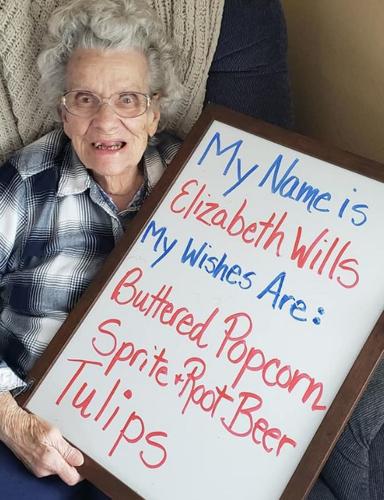 My Name is
Elizabeth Wills
My Wishes Are:
Buttered Popcorn
Sprite + Root Beer
Tulips